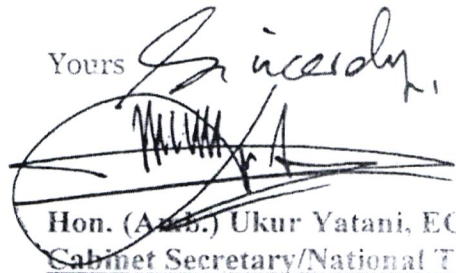 Yours Sincerely,
Hon. (Amb.) Ukur Yatani, EG
Cabinet Secretary/National T